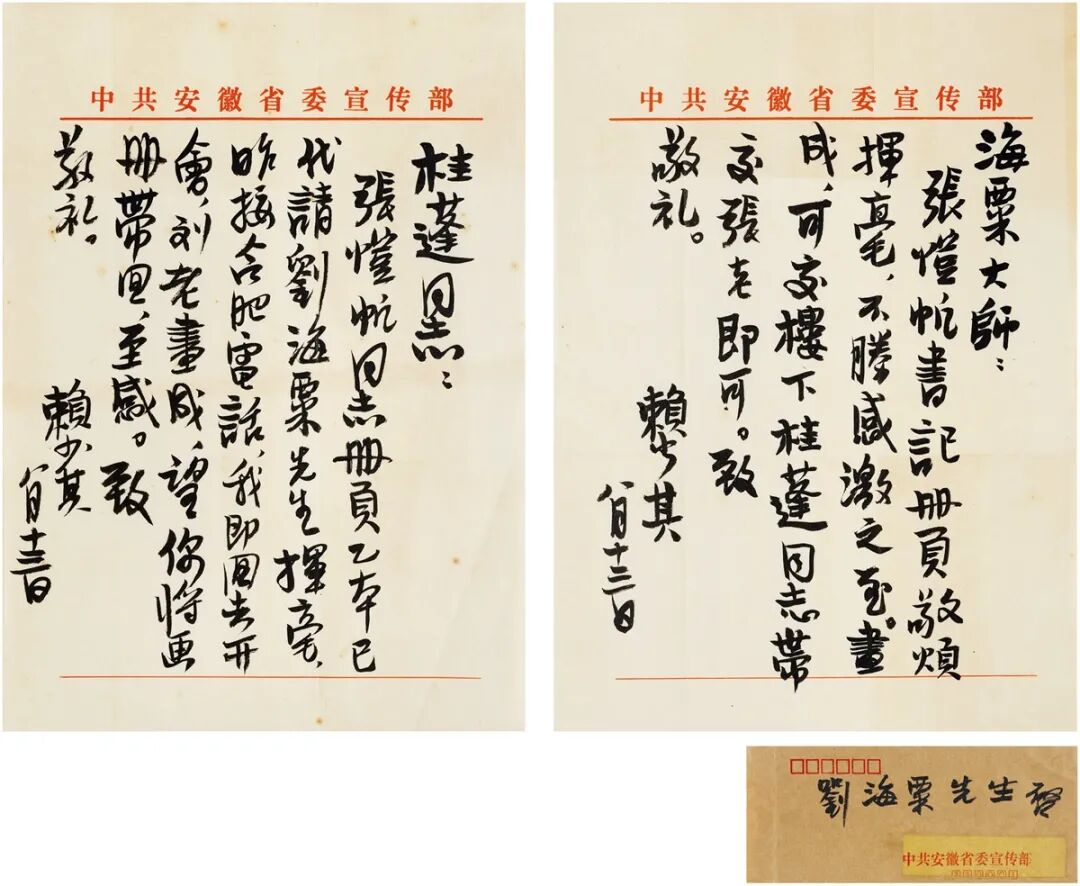 中共安徽省委宣传部
桂蓬同志：
張愷帆同志册頁乙本已
代請劉海粟先生揮毫，
昨接合肥電話，我即回去开
會，刘老畫成，望你将画
册帶回，至感。致
敬礼。
賴少其
八月十三日
中共安徽省委宣传部
海粟大師：
張愷帆書記册頁敬煩
揮毫，不勝感激之至。畫
成，可交樓下桂蓬同志帶
交張老即可。致
敬礼。
賴少其
八月十三日
劉海粟先生啓
中共安徽省委宣传部